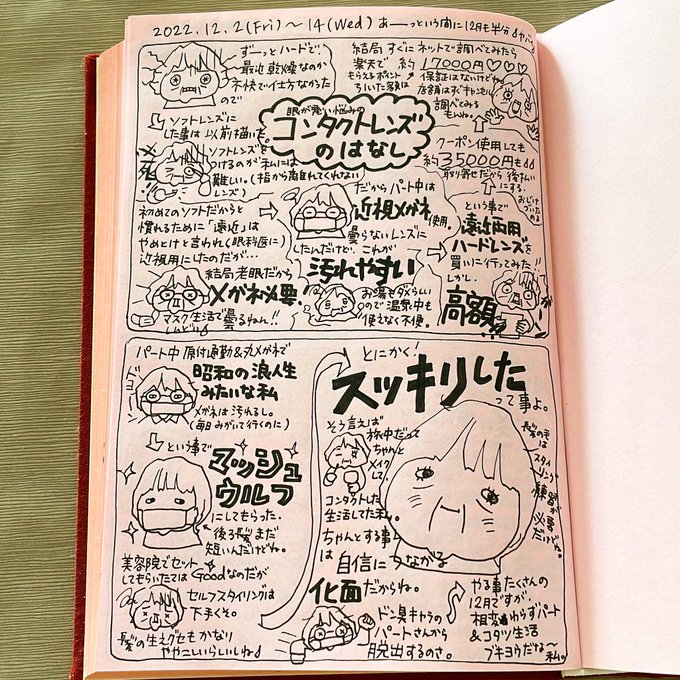 2022.12.2(Fri)〜14(Wed) あーっという間に12月も半分
ずーっとハードで、
最近乾燥なのか
不快で仕方なかった
ので
ソフトレンズに
した事は以前描いた。
ソフトレンズを
つけるのが私には
難しい。(指から離れてくれない
レンズ)
眼が悪い悩みの
コンタクトレンズ
のはなし
初めてのソフトだからと
慣れるために「遠近」は
やめとけと言われ(眼科医に)
近視用にしたのだが…
結局、老眼だから
メガネ必要!
マスク生活で曇るねん!!
しんどい
だからパート中は
近視メガネ使用。
曇らないレンズに
したんだけど、これが
汚れやすい
お湯もダメらしい
ので温泉中も
使えなく不便。
という事で
遠近両用
ハードレンズを
買いに行ってみた!!
しかし、
高額
クーポン使用しても
約35000円も
取り寄せだから後払い
にする。
おじけ
づいたのよ
結局すぐにネットで調べてみたら
楽天で約17000円♡♡♡
もらえるポイント
引いた額は
保証はないけどね
店舗はすぐキャンセル
調べてみる
もんね。
パート中、原付通勤&丸メガネで
昭和の浪人生
みたいな私
メガネは汚れるし。
(毎日みがいて行くのに)
という事で
マッシュ
ウルフ
にしてもらった。
後ろ髪まだ
短いんだけどね。
美容院でセット
してもらいたては Good なのだが
セルフスタイリングは
下手くそ。
髪の生えグセもかなり
ややこいらしいしね
とにかく!
スッキリした
って事よ。
髪の毛は
スタイリング
練習が
必要
だけどね。
そう言えば
旅中だって
ちゃんと
メイク
して、
コンタクトした
生活してた私。
ちゃんとする事
は
自信につながる
化面だからね。
ドン臭キャラの
パートさんから
脱出するのさ。
やる事たくさんの
12月ですが、
相変わらずパート
&コタツ生活
ブキヨウだな〜
私。